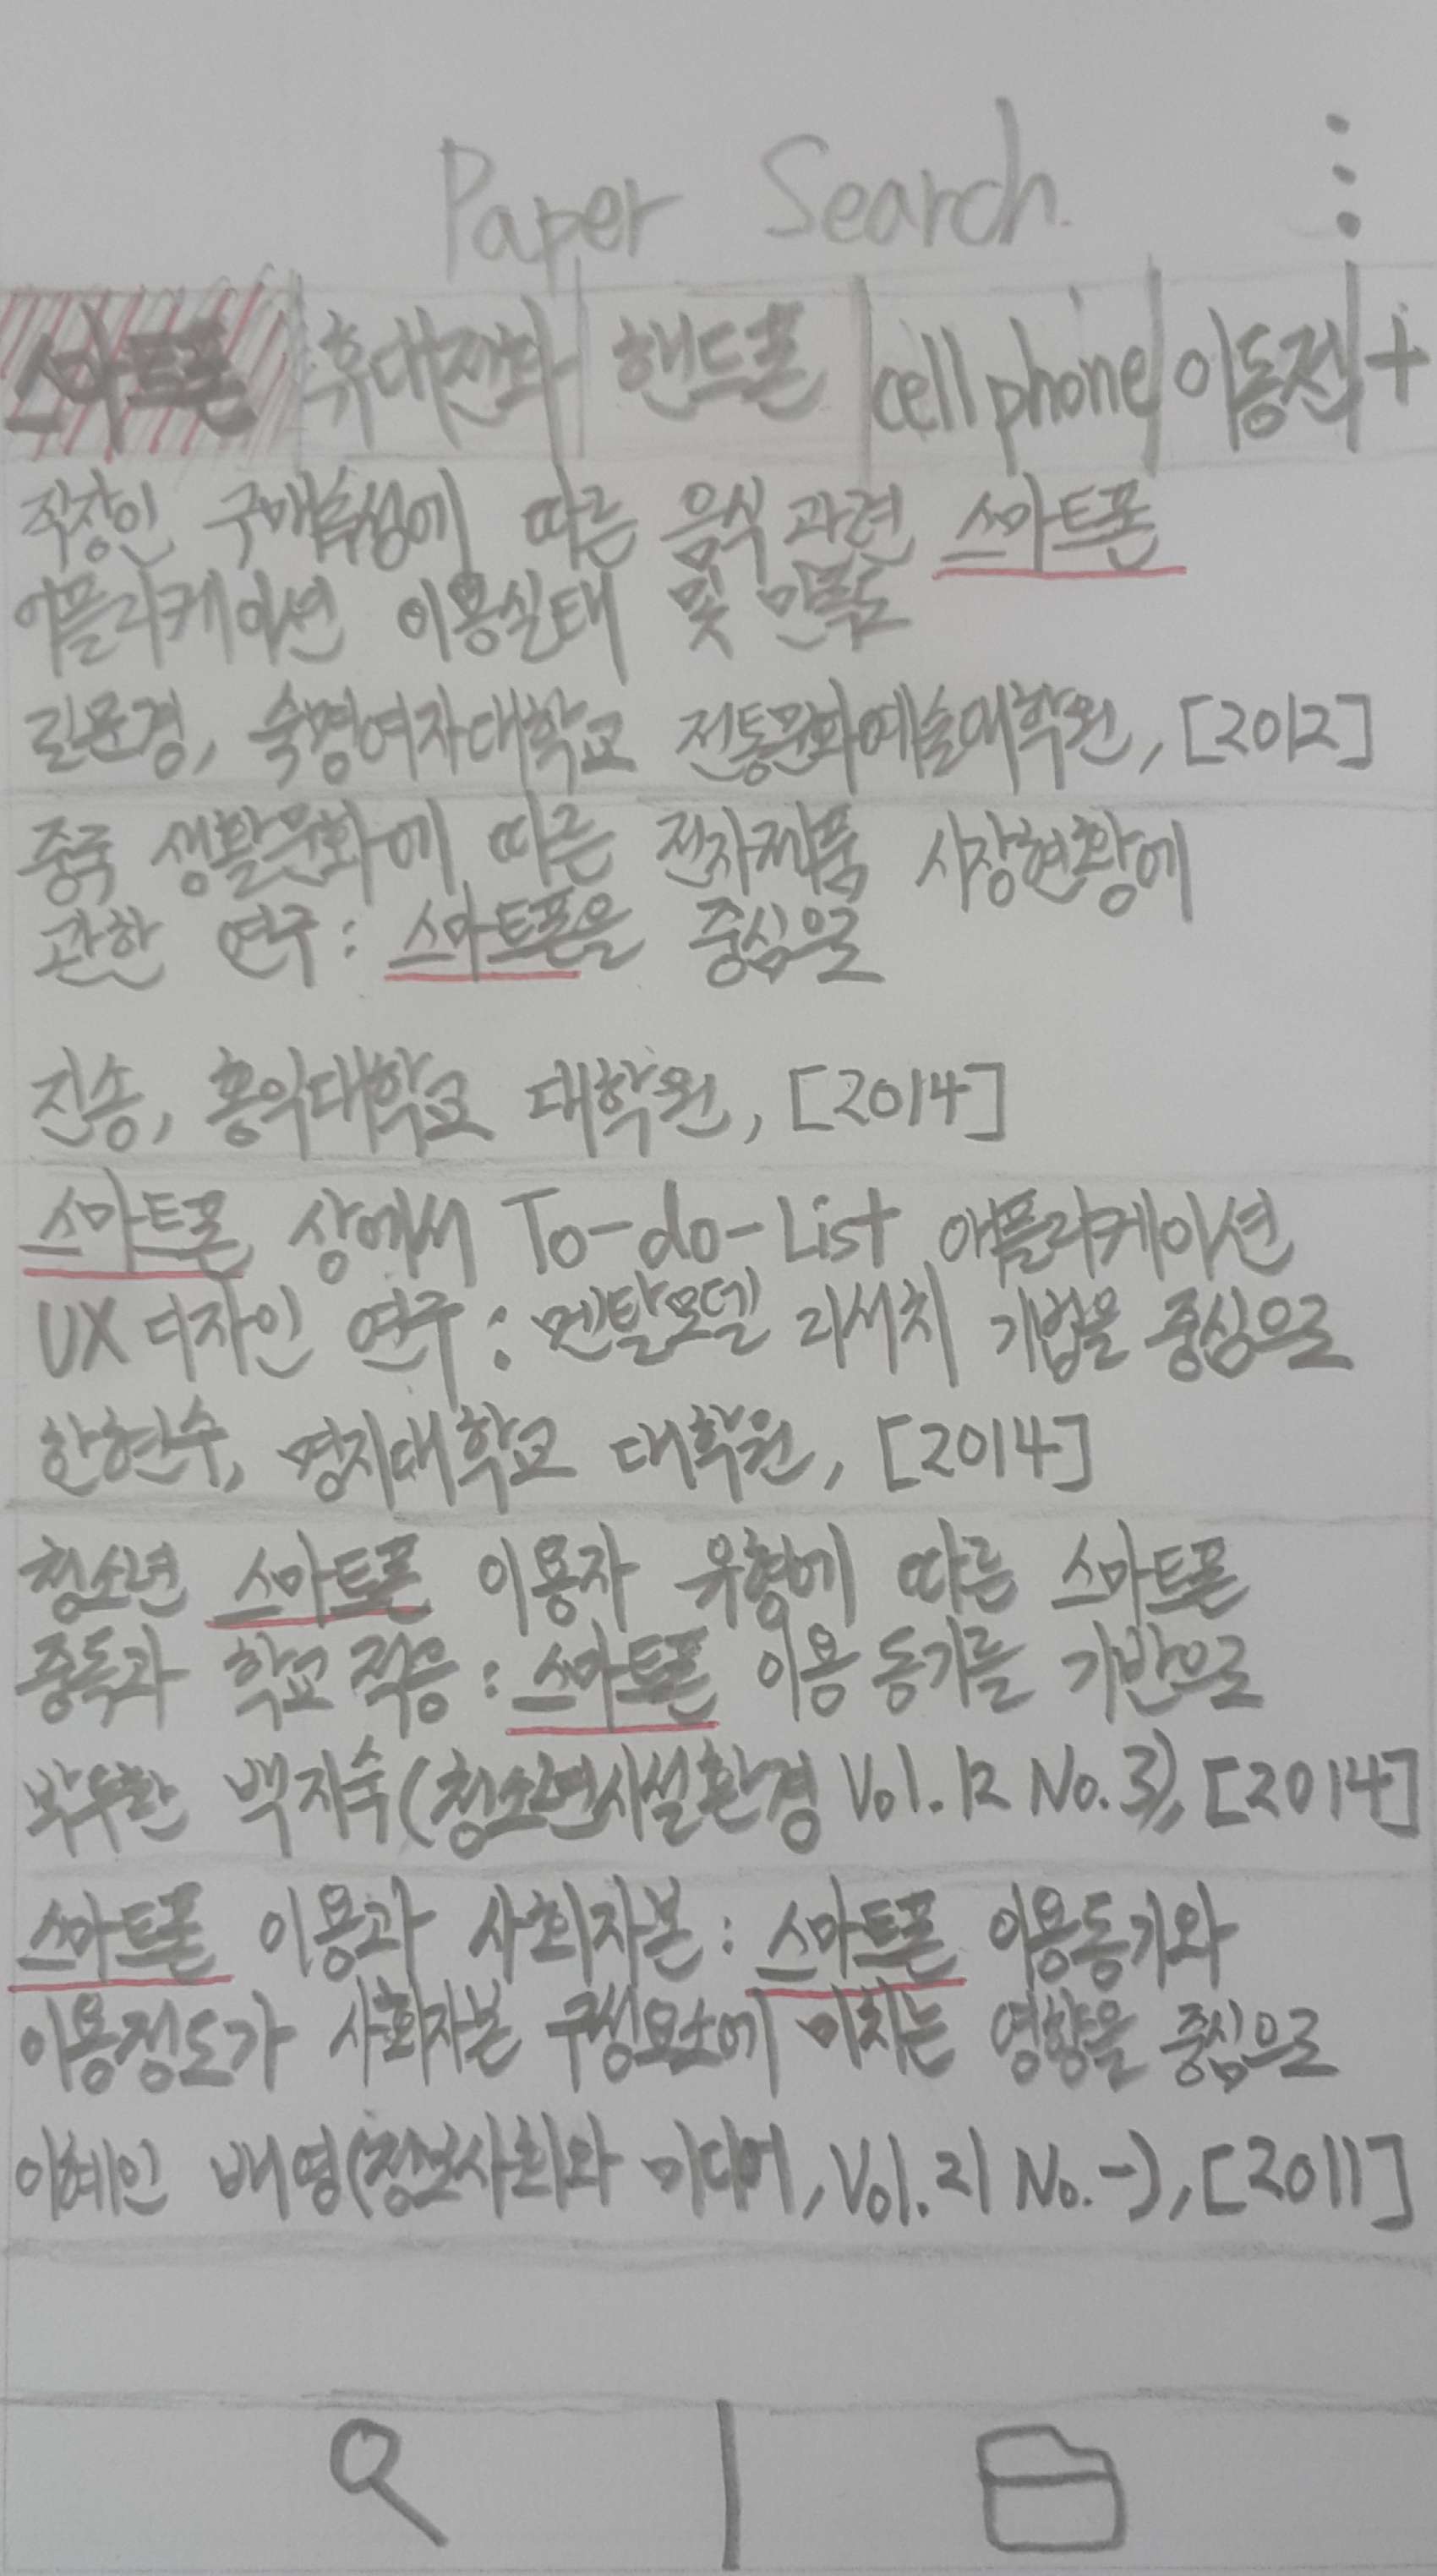 Paper Search
스마트폰 휴대전화 핸드폰 cell phone 이동전 +
직장인 구매습성에 따른 음식 관련 스마트폰
어플리케이션 이용실태 및 만족도
길문경, 숙명여자대학교 전통문화예술대학원, [2012]
중국 생활문화에 따른 전자제품 시장현황에
관한 연구: 스마트폰을 중심으로
진송, 홍익대학교 대학원, [2014]
스마트폰 상에서 To-do-List 애플리케이션
UX 디자인 연구: 멘탈모델 리서치 기법을 중심으로
한현수, 명지대학교 대학원, [2014]
청소년 스마트폰 이용자 유형에 따른 스마트폰
중독과 학교 적응: 스마트폰 이용 동기를 기반으로
백지숙(청소년시설환경 Vol.12 No.3), [2014]
스마트폰 이용과 사회자본: 스마트폰 이용동기와
이용정도가 사회자본 구성요소에 미치는 영향을 중심으로
이혜인 배영(정보사회와 미디어, Vol.21 No.-), [2011]